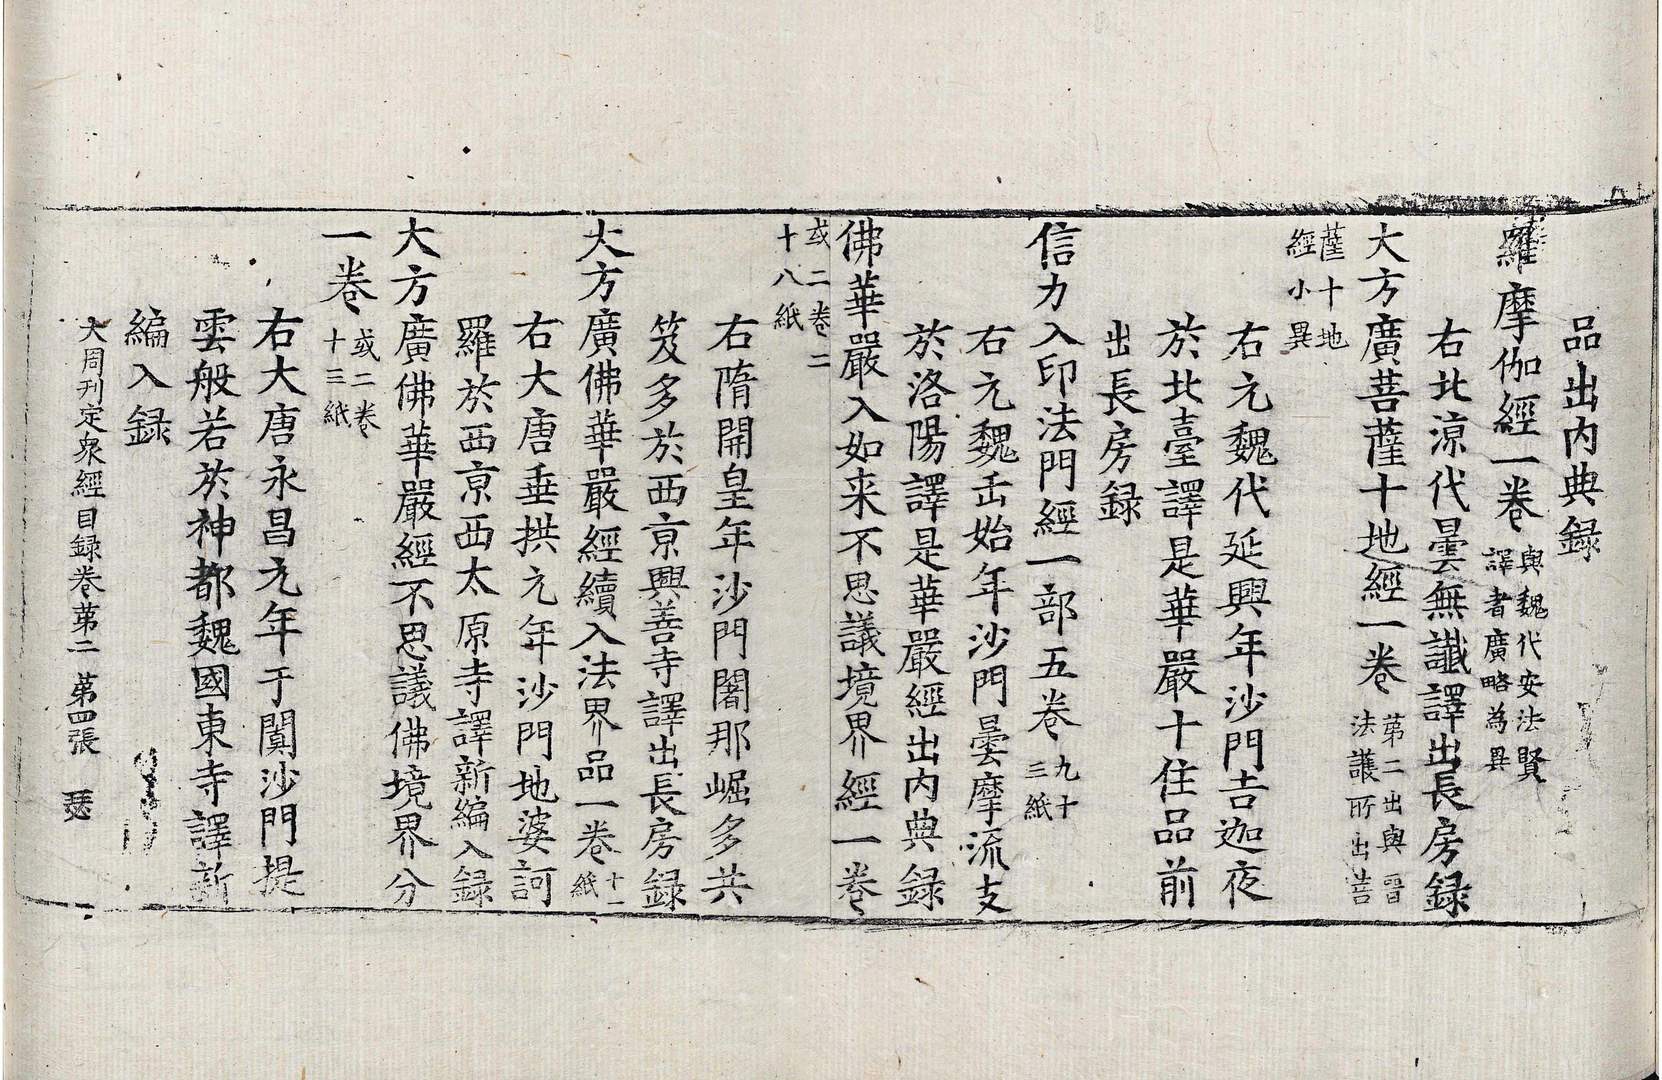 品出内典録
羅摩伽經一卷 與魏代安法賢
譯者廣略為異
右北涼代曇無讖譯出長房録
大方廣菩薩十地經一卷 第二出與晋
法護所出菩
薩十地
經小異
右元魏代延興年沙門吉迦夜
於北臺譯是華嚴十住品前
出長房録
信力入印法門經一部五卷 九十
三紙
右元魏正始年沙門曇摩流支
於洛陽譯是華嚴經出内典録
佛華嚴入如来不思議境界經一卷
或二卷二
十八紙
右隋開皇年沙門闍那崛多共
笈多於西京興善寺譯出長房録
大方廣佛華嚴經續入法界品一卷 十一
紙
右大唐垂拱元年沙門地婆訶
羅於西京西太原寺譯新編入録
大方廣佛華嚴經不思議佛境界分
一卷 或二卷
十三紙
右大唐永昌元年于闐沙門提
雲般若於神都魏國東寺譯新
編入録
大周刊定衆經目録卷第二 第四張 瑟